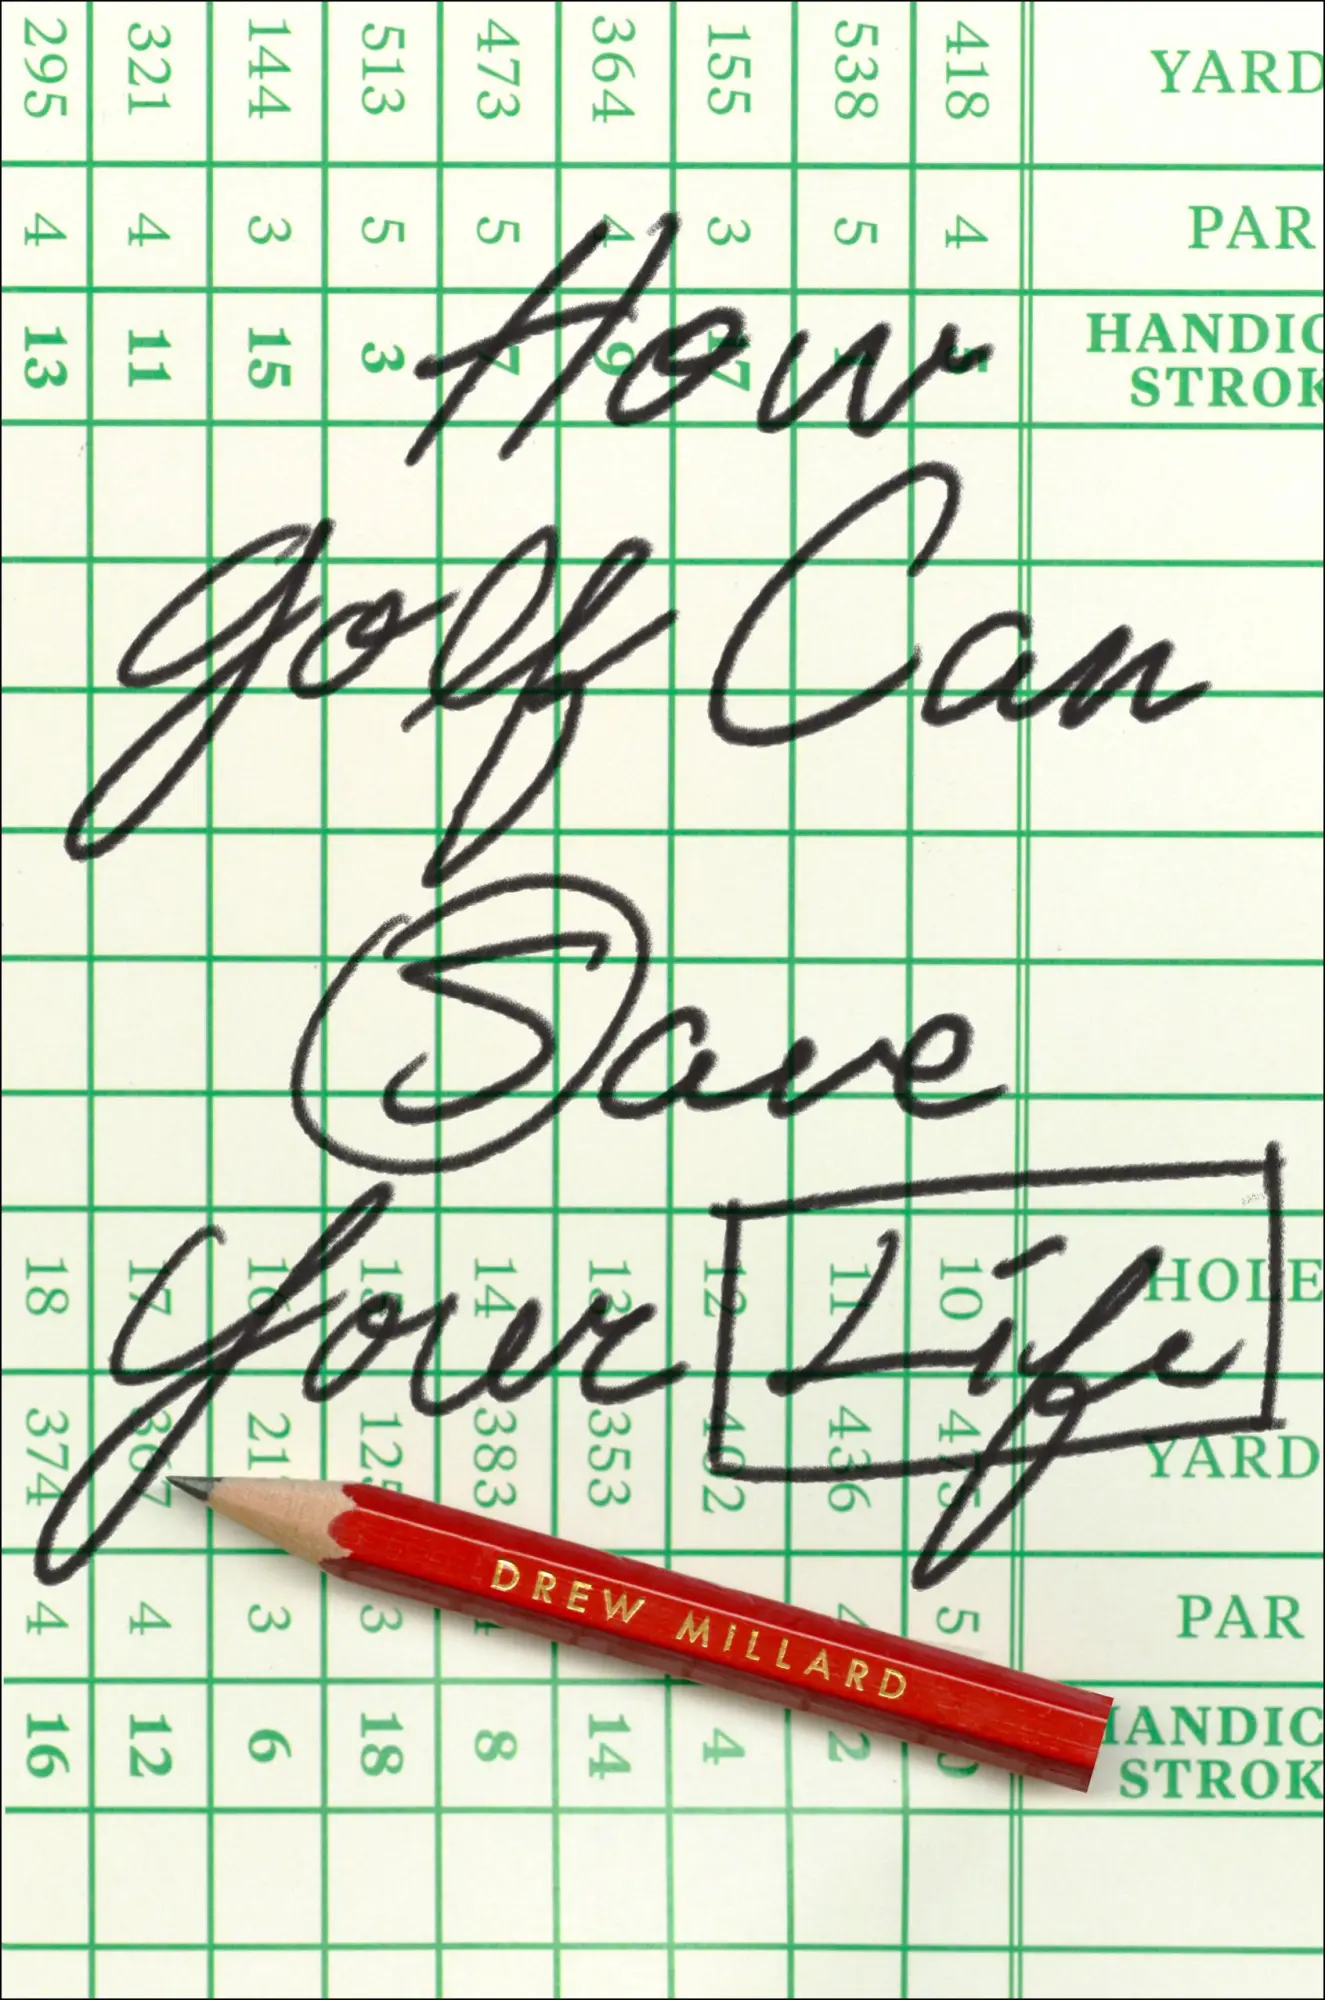 295 321 144 513 473 364 155 538 418 YARD
4 4 3 5 5 4 3 5 4 PAR
13 11 15 3 7 9 17 HANDIC
STROK
How
Golf Can
Save
Your Life
18 17 16 15 14 13 12 11 10 HOLE
374 367 125 383 353 402 436 475 YARD
4 4 3 3 4 5 PAR
DREW MILLARD
16 12 6 18 8 14 4 2 HANDIC
STROK